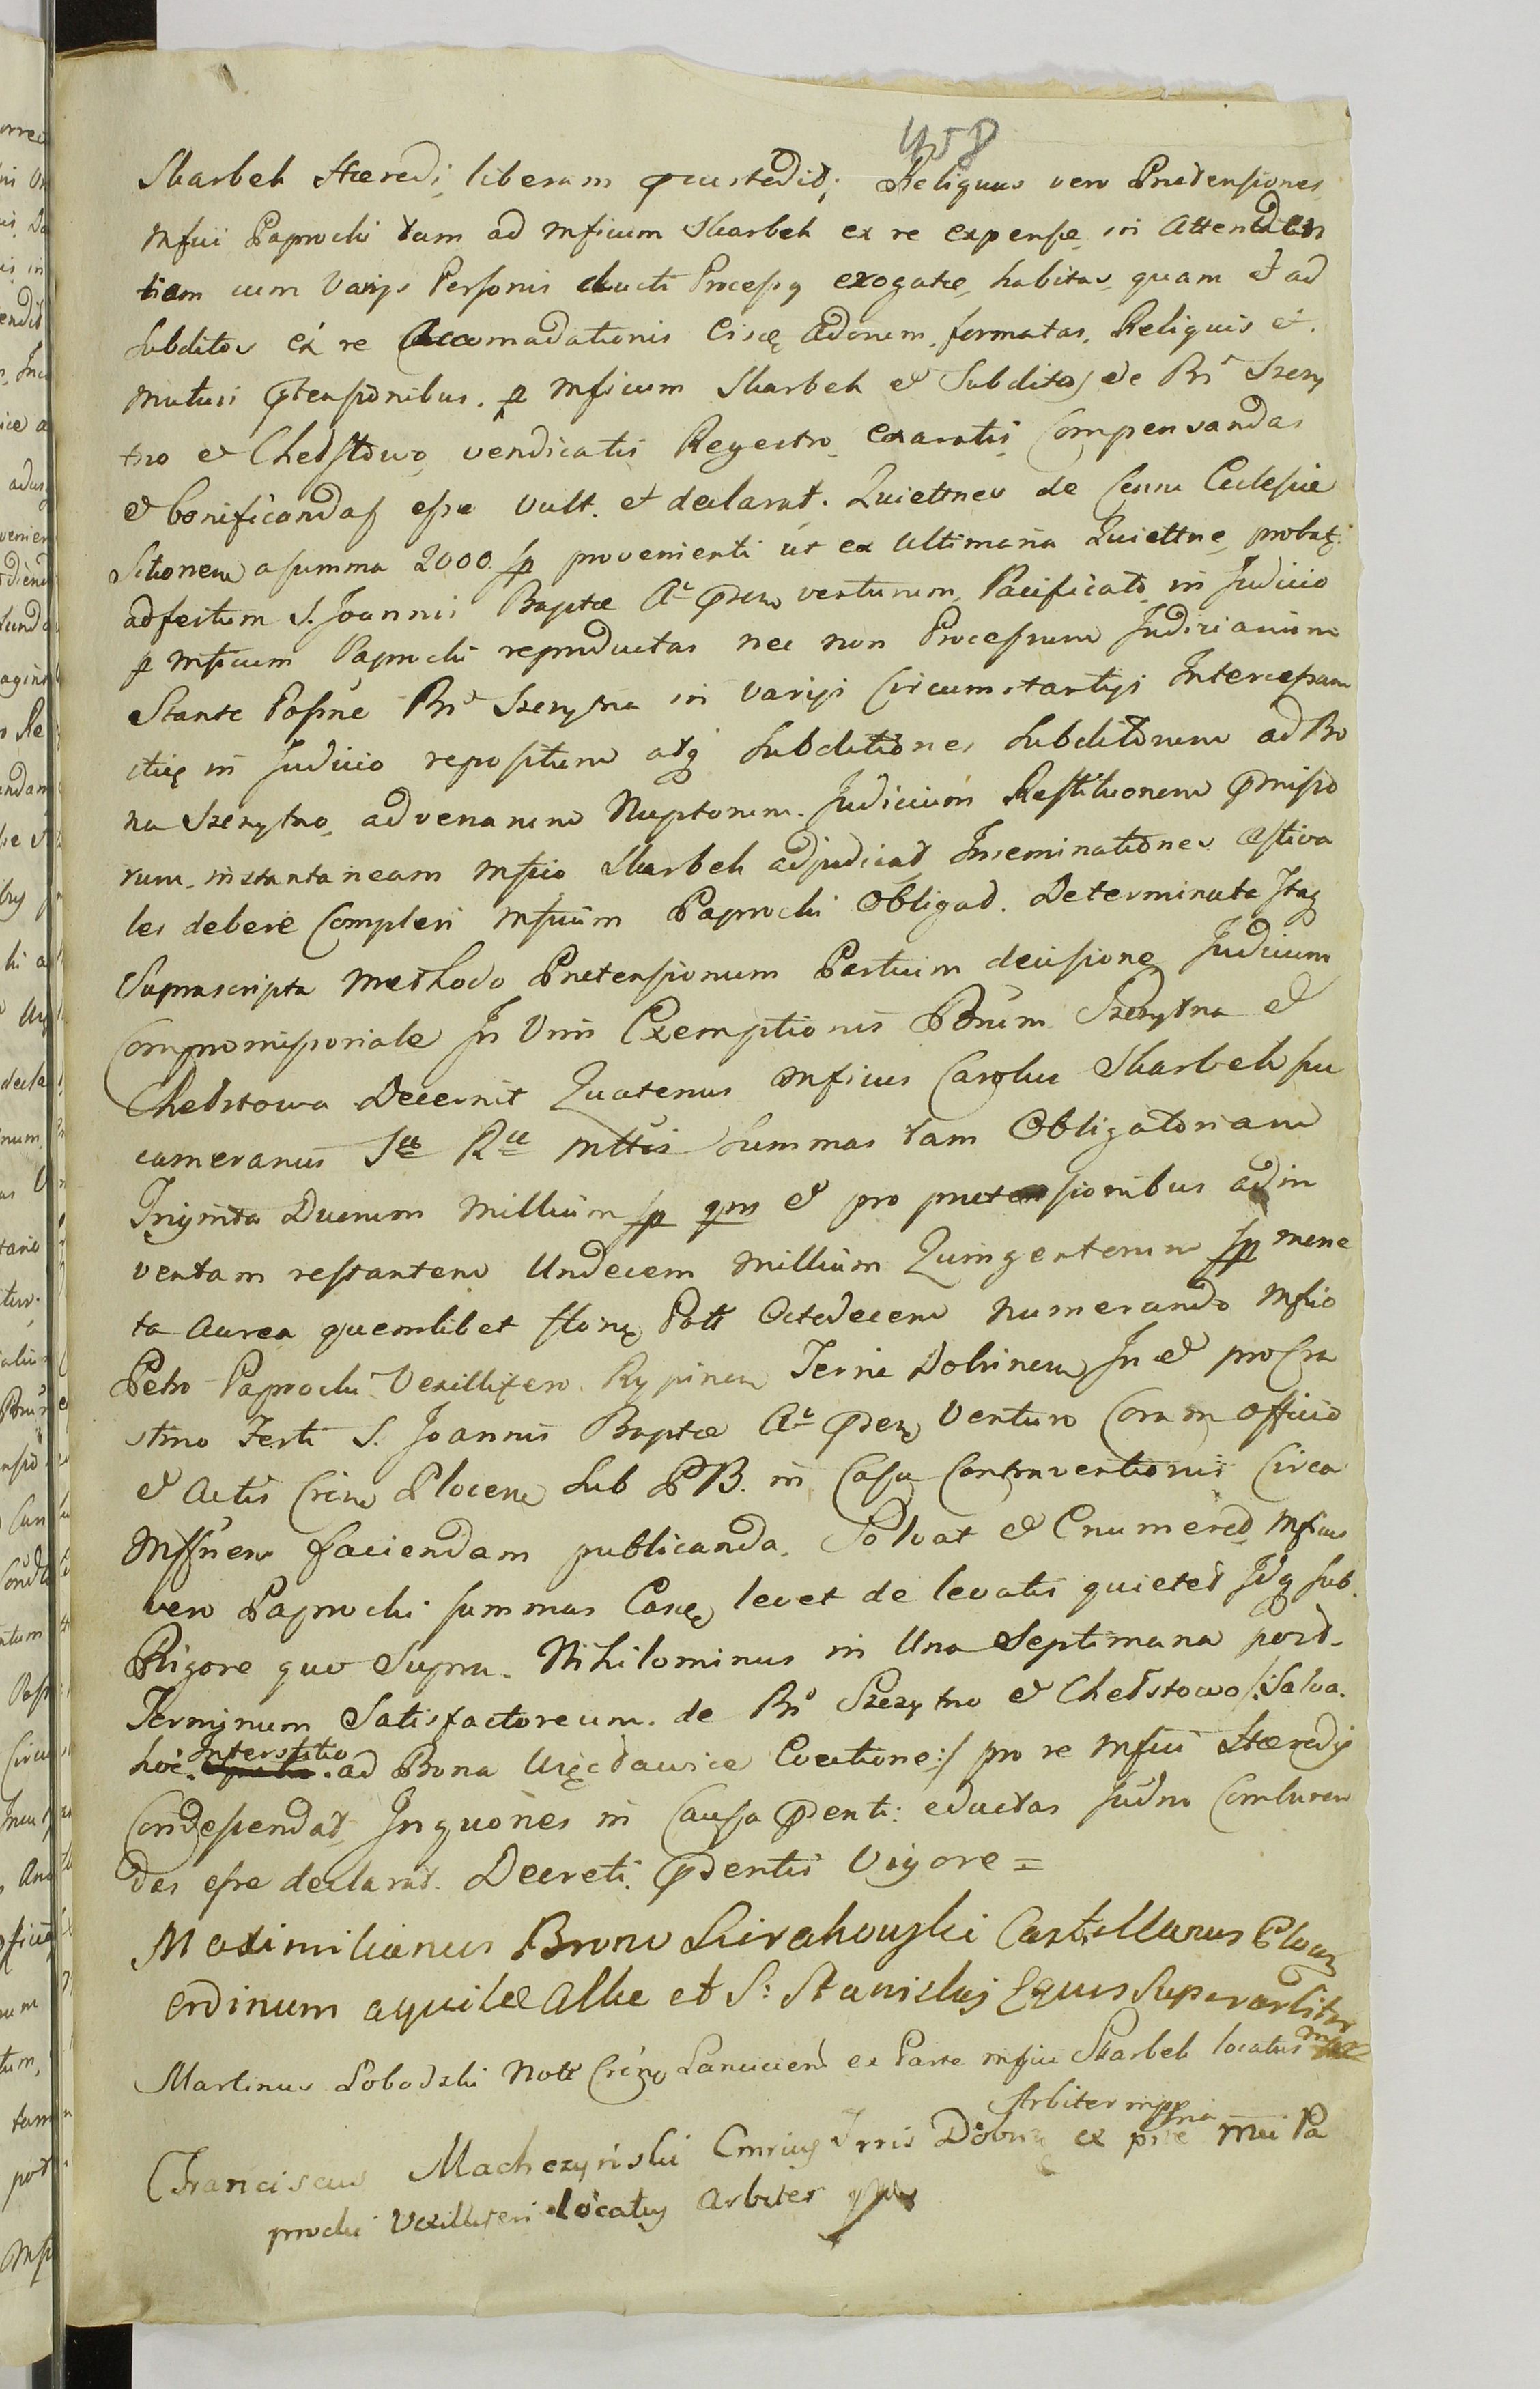 458
Skarbek Hæredi liberam custodit; Reliquas vero Prætensiones
Mfici Paprocki tam ad Mficum Skarbek ex re expensæ in Attenden
tiam cum Varijs Personis ducti Processq exogatæ, habitas, quam et ad
subditos ex re Accomadationis Eisdę Adorum, formatas, Reliquis et
mutuis Ptensionibus, p Mficum Skarbek et Subditos de Bis Szczy
tno et Chełstowo vendicatis Regestro exaratis Compensandas
et bonificandas esse Vult et declarat. Quiettnes de Censu Ecclesiæ
Sctionem a summa 2000 fp provenienti ut ex Ultimaria Quiettne probat:
ad festum S. Joannis Baptæ Ai Psen venturum, Pacificato in Judicio
p Mficum Paprocki reproductas nec non Processum Judiciarium
Stante Possne Bis Szczytna in Varijs Circumstantijs Intercessum
in Judicio repositum atq subditiones subditorum ad Bo
na Szczytno advenarum Nuptorum. Judicium Restituonem Pmisso
rum, instantaneam Mfico Skarbek adjudicat Inseminationes æstiva
les debere Compleri Mficum Paprocki Obligat. Determinata Itaq
Suprascripta Methodo Prætensionum Partium decisione Judicium
Compromissoriale In Vim Exemptionis Bnum Szczytna et
Chełstowa Decernit Quatenus Mficus Carolus Skarbek su
camerarius Sæ Ræ Mttis Summas tam Obligatoriam
Triginta Duorum Millium fp qm et pro prætensionibus adin
ventam restantem Undecem Millium Quingentorum fp mone
ta Aurea quemlibet flonę Pott Octodecem numerando Mfico
Petro Paprocki Vexillifero Rypinen Terræ Dobrinen In et pro Cra
stino Festi S. Joannis Baptæ Ai Psen Venturo Coram Officio
et Actis Cren Plocen sub PB. in Casu Contraventionis Circa
Mssnem faciendam publicanda. Solvat et Enumeret, Mficus
vero Paprocki summas Easdę levet de levatis quietet Idq sub
Rigore quo Supra. Nihilominus in Una Septimana post
Terminum Satisfactoreum de Bis Szczytno et Chełstowo /:Salva
hoc Interstitio ad Bona Uięzdawice Evectione:/ pro re Mfici Hæredis
Condespendat Inquones in Causa Psenti: eductas Judno Comburen
das esse declarat. Decreti Psentis Vigore =
Maximilianus Bruno Sierakowski Castellanus Plocen
ordinum aquilæ Albæ et S: Stanislaj Eques Superarbiter
mp
Martinus Łobodzki Nott Cren Lancicien ex Parte mfici Skarbek locatus
Arbiter mppria
Franciscus Machczyński Cmrius Trris Dobrz ex pte Mci Pa
procki Vexilliferi locatus Arbiter